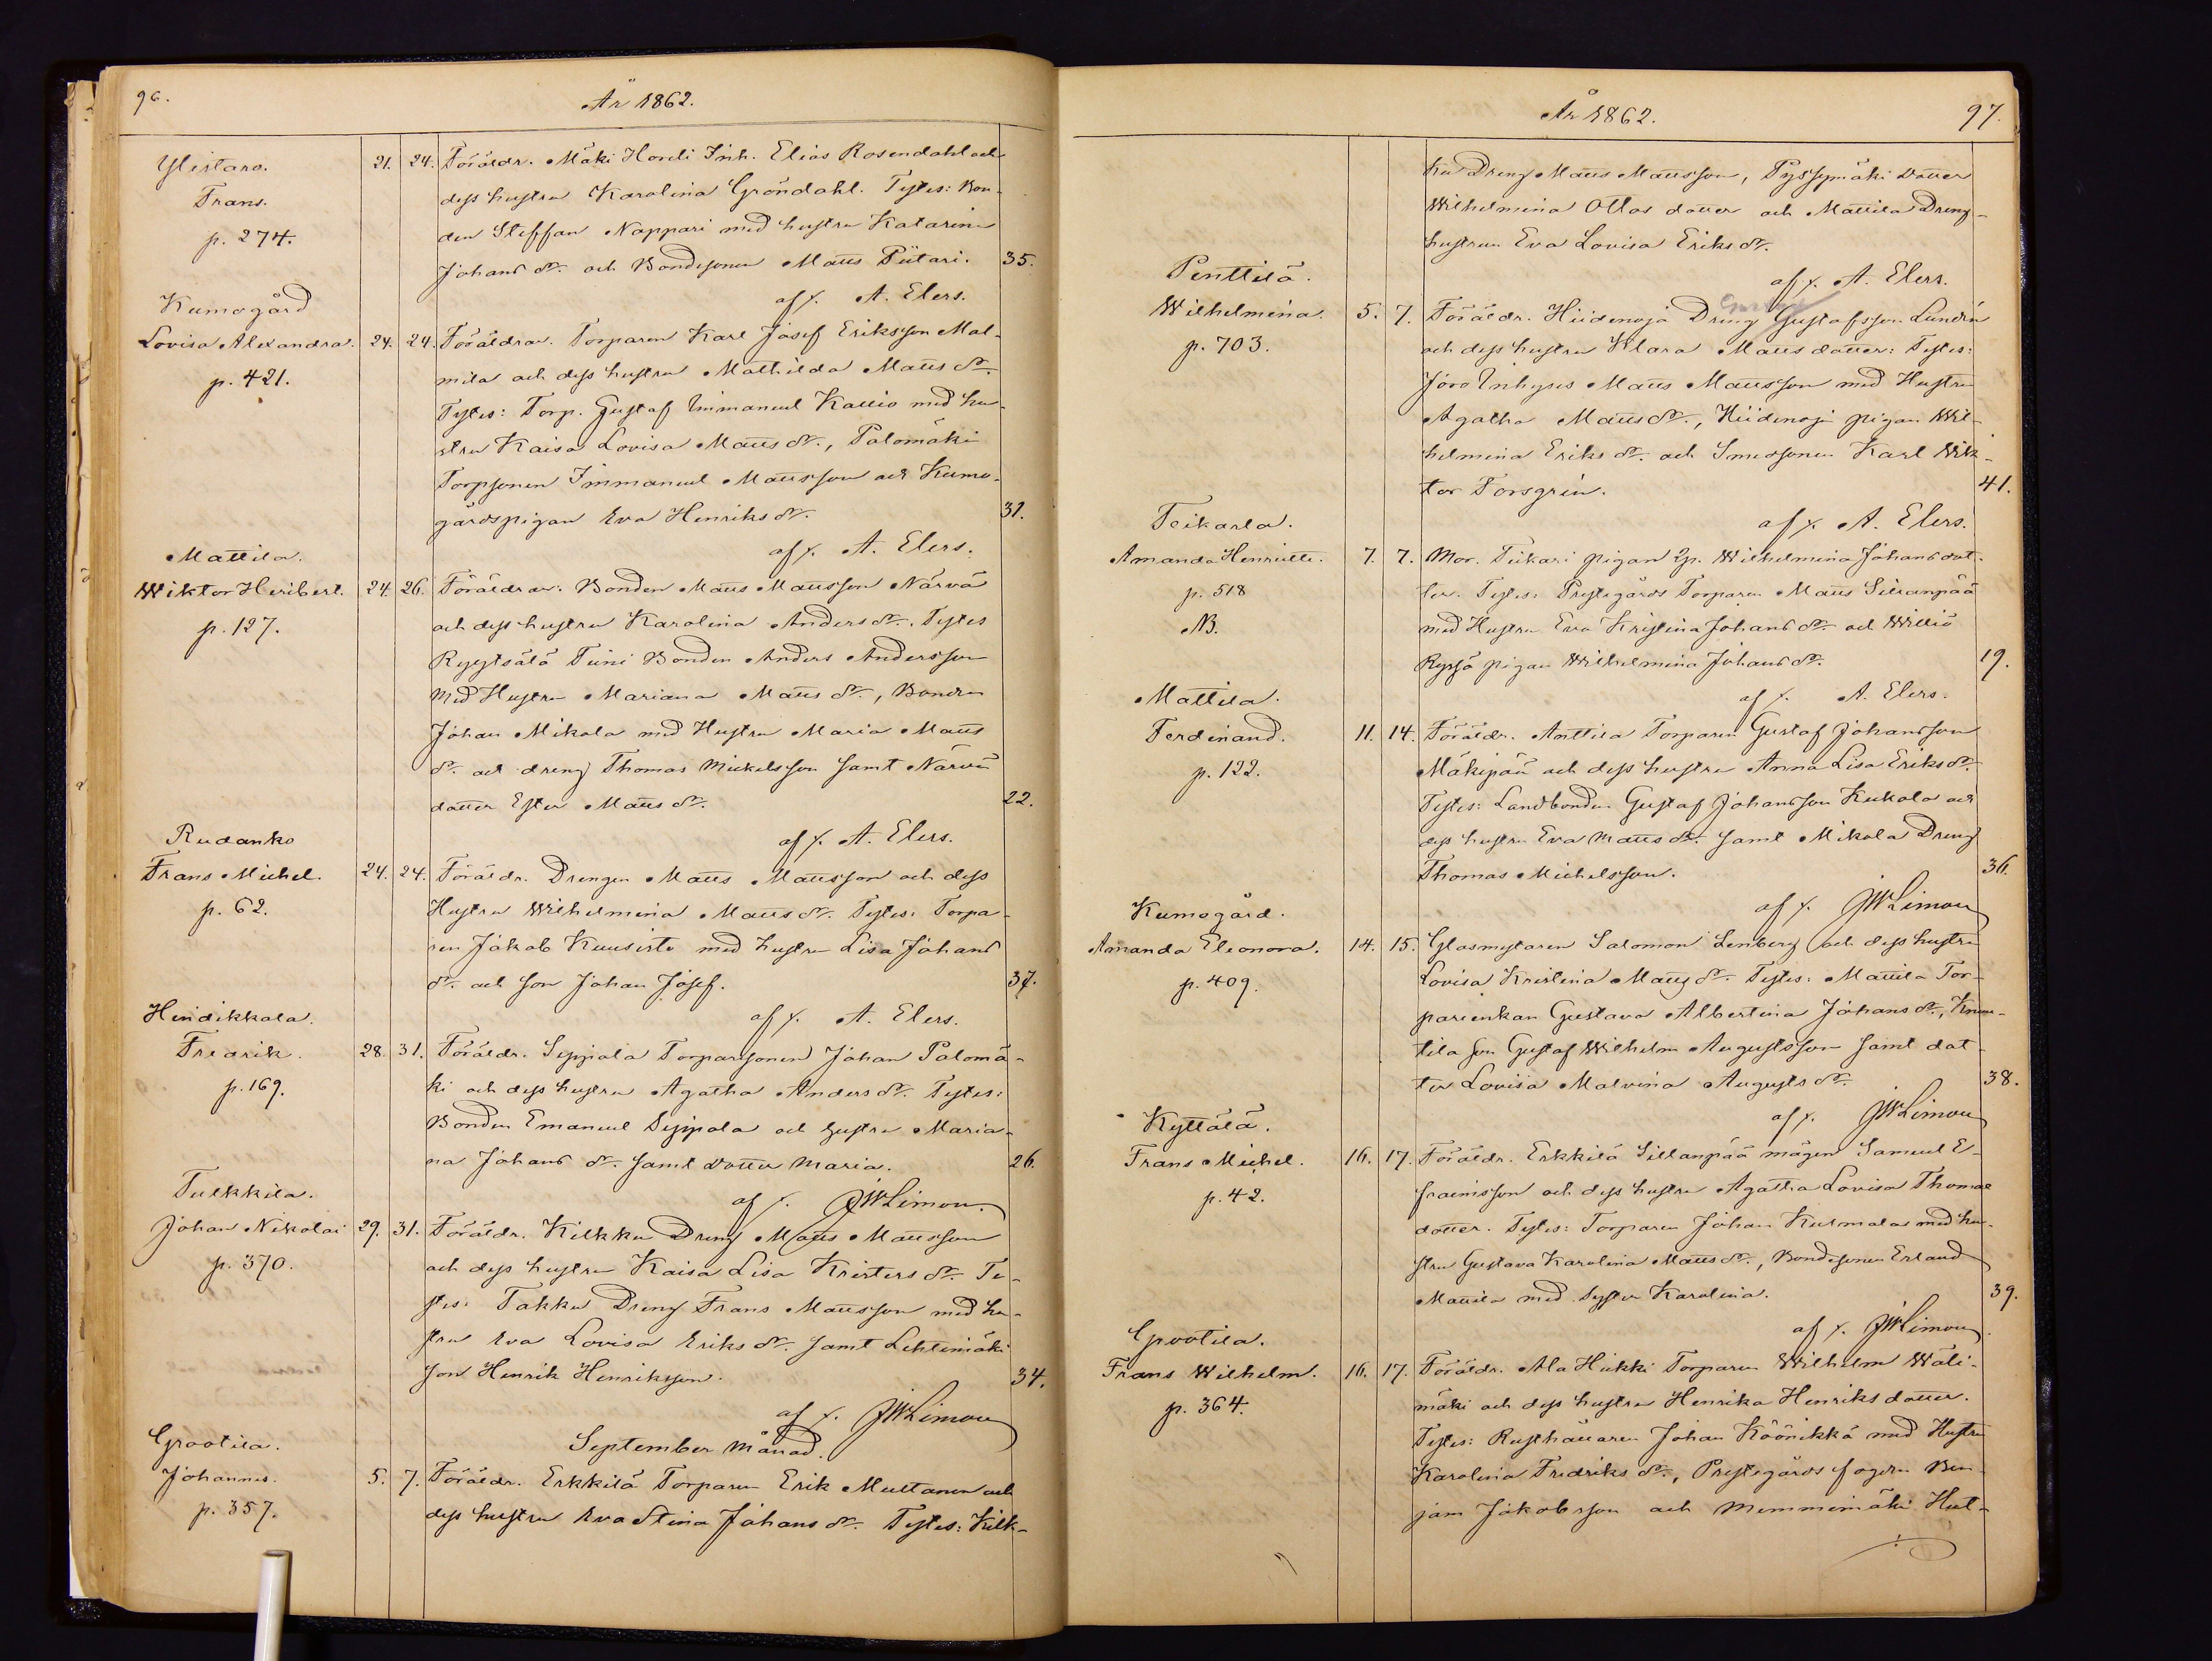 96.
År 1862.
Ylistaro. 21. 24. Föräldr. Mäki Hordi Inh. Elias Rosendahl och
Frans. dess hustru Karolina Gröndahl. Testes: Bon-
p. 274. den Steffan Nappari med hustru Katarina
Johans dr. och Bondesonen Matts Piitari. 35.
af f. A. Elers.
Kumogård
Lovisa Alexandra. 24. 24. Föräldrar. Torparen Karl Josef Eriksson Mal-
p. 421. mila och dess hustru Mathilda Matts dr.
Testes: Torp. Gustaf Immanuel Kallio med hu-
stru Kaisa Lovisa Matts dr., Palomäki
Torpsonen Immanuel Mattsson och Kumo-
gårdspigan Eva Henriks dr. 31.
af f. A. Elers.
Mattila.
Wiktor Heribert. 24. 26. Föräldrar: Bonden Matts Mattsson Närvä
p. 127. och dess hustru Karolina Anders dr. Testes
Ryytsälä Tuini Bonden Anders Andersson
med Hustru Mariana Matts dr., Bonden
Johan Mikola med Hustru Maria Matts
dr. och dreng Thomas Mickelsson samt Närvä
dotter Ester Matts dr. 22.
af f. A. Elers.
Rudanko
Frans Michel. 24. 24. Föräldr. Drengen Matts Mattsson och dess
p. 62. Hustru Wilhelmina Matts dr. Testes: Torpa-
ren Jakob Kuusisto med hustru Lisa Johans
dr. och son Johan Josef. 37.
af f. A. Elers.
Hindikkala.
Fredrik. 28. 31. Föräldr. Seppala Torparsonen Johan Palomä-
p. 169. ki och dess hustru Agatha Anders dr. Testes:
Bonden Emanuel Seppala och hustru Maria-
na Johans dr. samt dotter Maria. 26.
af f. JWLimon.
Tulkkila.
Johan Nikolai 29. 31. Föräldr. Kilkku Dreng Matts Mattsson
p. 370. och dess hustru Kaisa Lisa Kristers dr. Te-
stes: Takku Dreng Frans Mattsson med hu-
stru Eva Lovisa Eriks dr. samt Lehtimäki
son Henrik Henriksson. 34.
af f. JWLimon
September Månad.
Grootila.
Johannes. 5. 7. Föräldr. Erkkilä Torparen Erik Multanen och
p. 357. dess hustru Eva Stina Johans dr. Testes: Kilk-
År 1862.
97.
ku Dreng Matts Mattsson, Pyssymäki dotter
Wilhelmina Ottos dotter och Mattila Dreng-
hustrun Eva Lovisa Eriks dr.
af f. A. Elers.
Penttilä.
Wilhelmina. 5. 7. Föräldr. Hiidenoja Dreng Gustafsson Lundén
p. 703. och dess hustru Klara Matts dotter: Testes:
Jova Inhyses Matts Mattsson med Hustru
Agatha Matts dr., Hiidenoja pigan Wil-
helmina Eriks dr. och Smedsonen Karl Wik-
tor Forsgrén. 41.
af f. A. Elers.
Teikarla.
Amanda Henriette. 7. 7. Mor. Tiikari pigan Ep. Wilhelmina Johans dot-
p. 518 ter. Testes: Prestegårds Torparen Matts Sieranpää
NB. med Hustru Eva Kristina Johans dr. och Williö
Ryssä pigan Wilhelmina Johans dr. 19.
af f. A. Elers.
Mattila.
Ferdinand. 11. 14. Föräldr. Anttila Torparen Gustaf Johansson
p. 122. Mäkipää och dess hustru Anna Lisa Eriks dr.
Testes: Landbonden Gustaf Johansson Kukola och
dess hustru Eva Matts dr. samt Mikola Dreng
Thomas Michelsson. 36.
af f. JWLimon
Kumogård.
Amanda Eleonora. 14. 15. Glasmästaren Salomon Lenberg och dess hustru
p. 409. Lovisa Kristina Matts dr. Testes: Mattila Tor-
parienkan Gustava Albertina Johans dr.,
tila son Gustaf Wilhelm Augustsson samt dot-
ter Lovisa Malvina Augusts dr. 38.
af f. JWLimon
Kyttälä.
Frans Michel. 16. 17. Föräldr. Erkkilä Sillanpää mågen Samuel E-
p. 42. fraimsson och dess hustru Agatha Lovisa Thomas
dotter. Testes: Torparen Johan Kulmala med hu-
stru Gustava Karolina Matts dr., Bondesonen Erland
Mattila med Syster Karolina. 39.
af f. JWLimon
Grootila.
Frans Wilhelm. 16. 17. Föräldr. Ala Hiukki Torparen Wilhelm Wäli-
p. 364. mäki och dess hustru Henrika Henriks dotter.
Testes: Rusthållaren Johan Köönikkä med Hustru
Karolina Fredriks dr., Prestegårds fogden Ben-
jam Jakobsson och Memmimäki Hul-